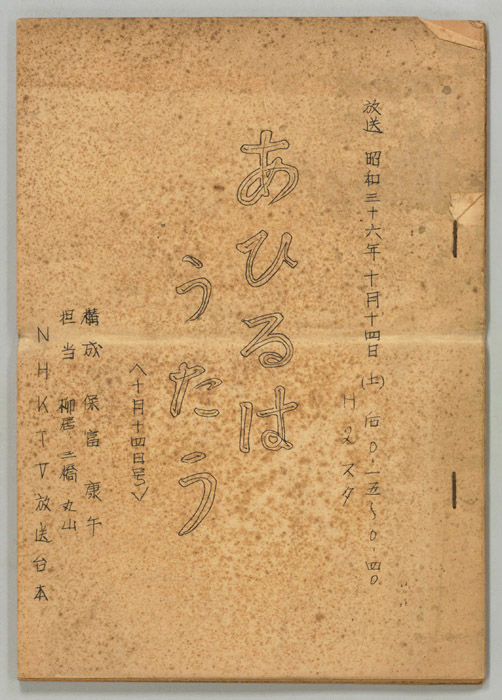 放送 昭和三十六年十月十四日(土)后〇・一五〜〇・四〇
H2スタ
あひるは
うたう
〈十月十四日号〉
構成 保富康午
担当 柳 三橋 丸山
NHKTV放送台本